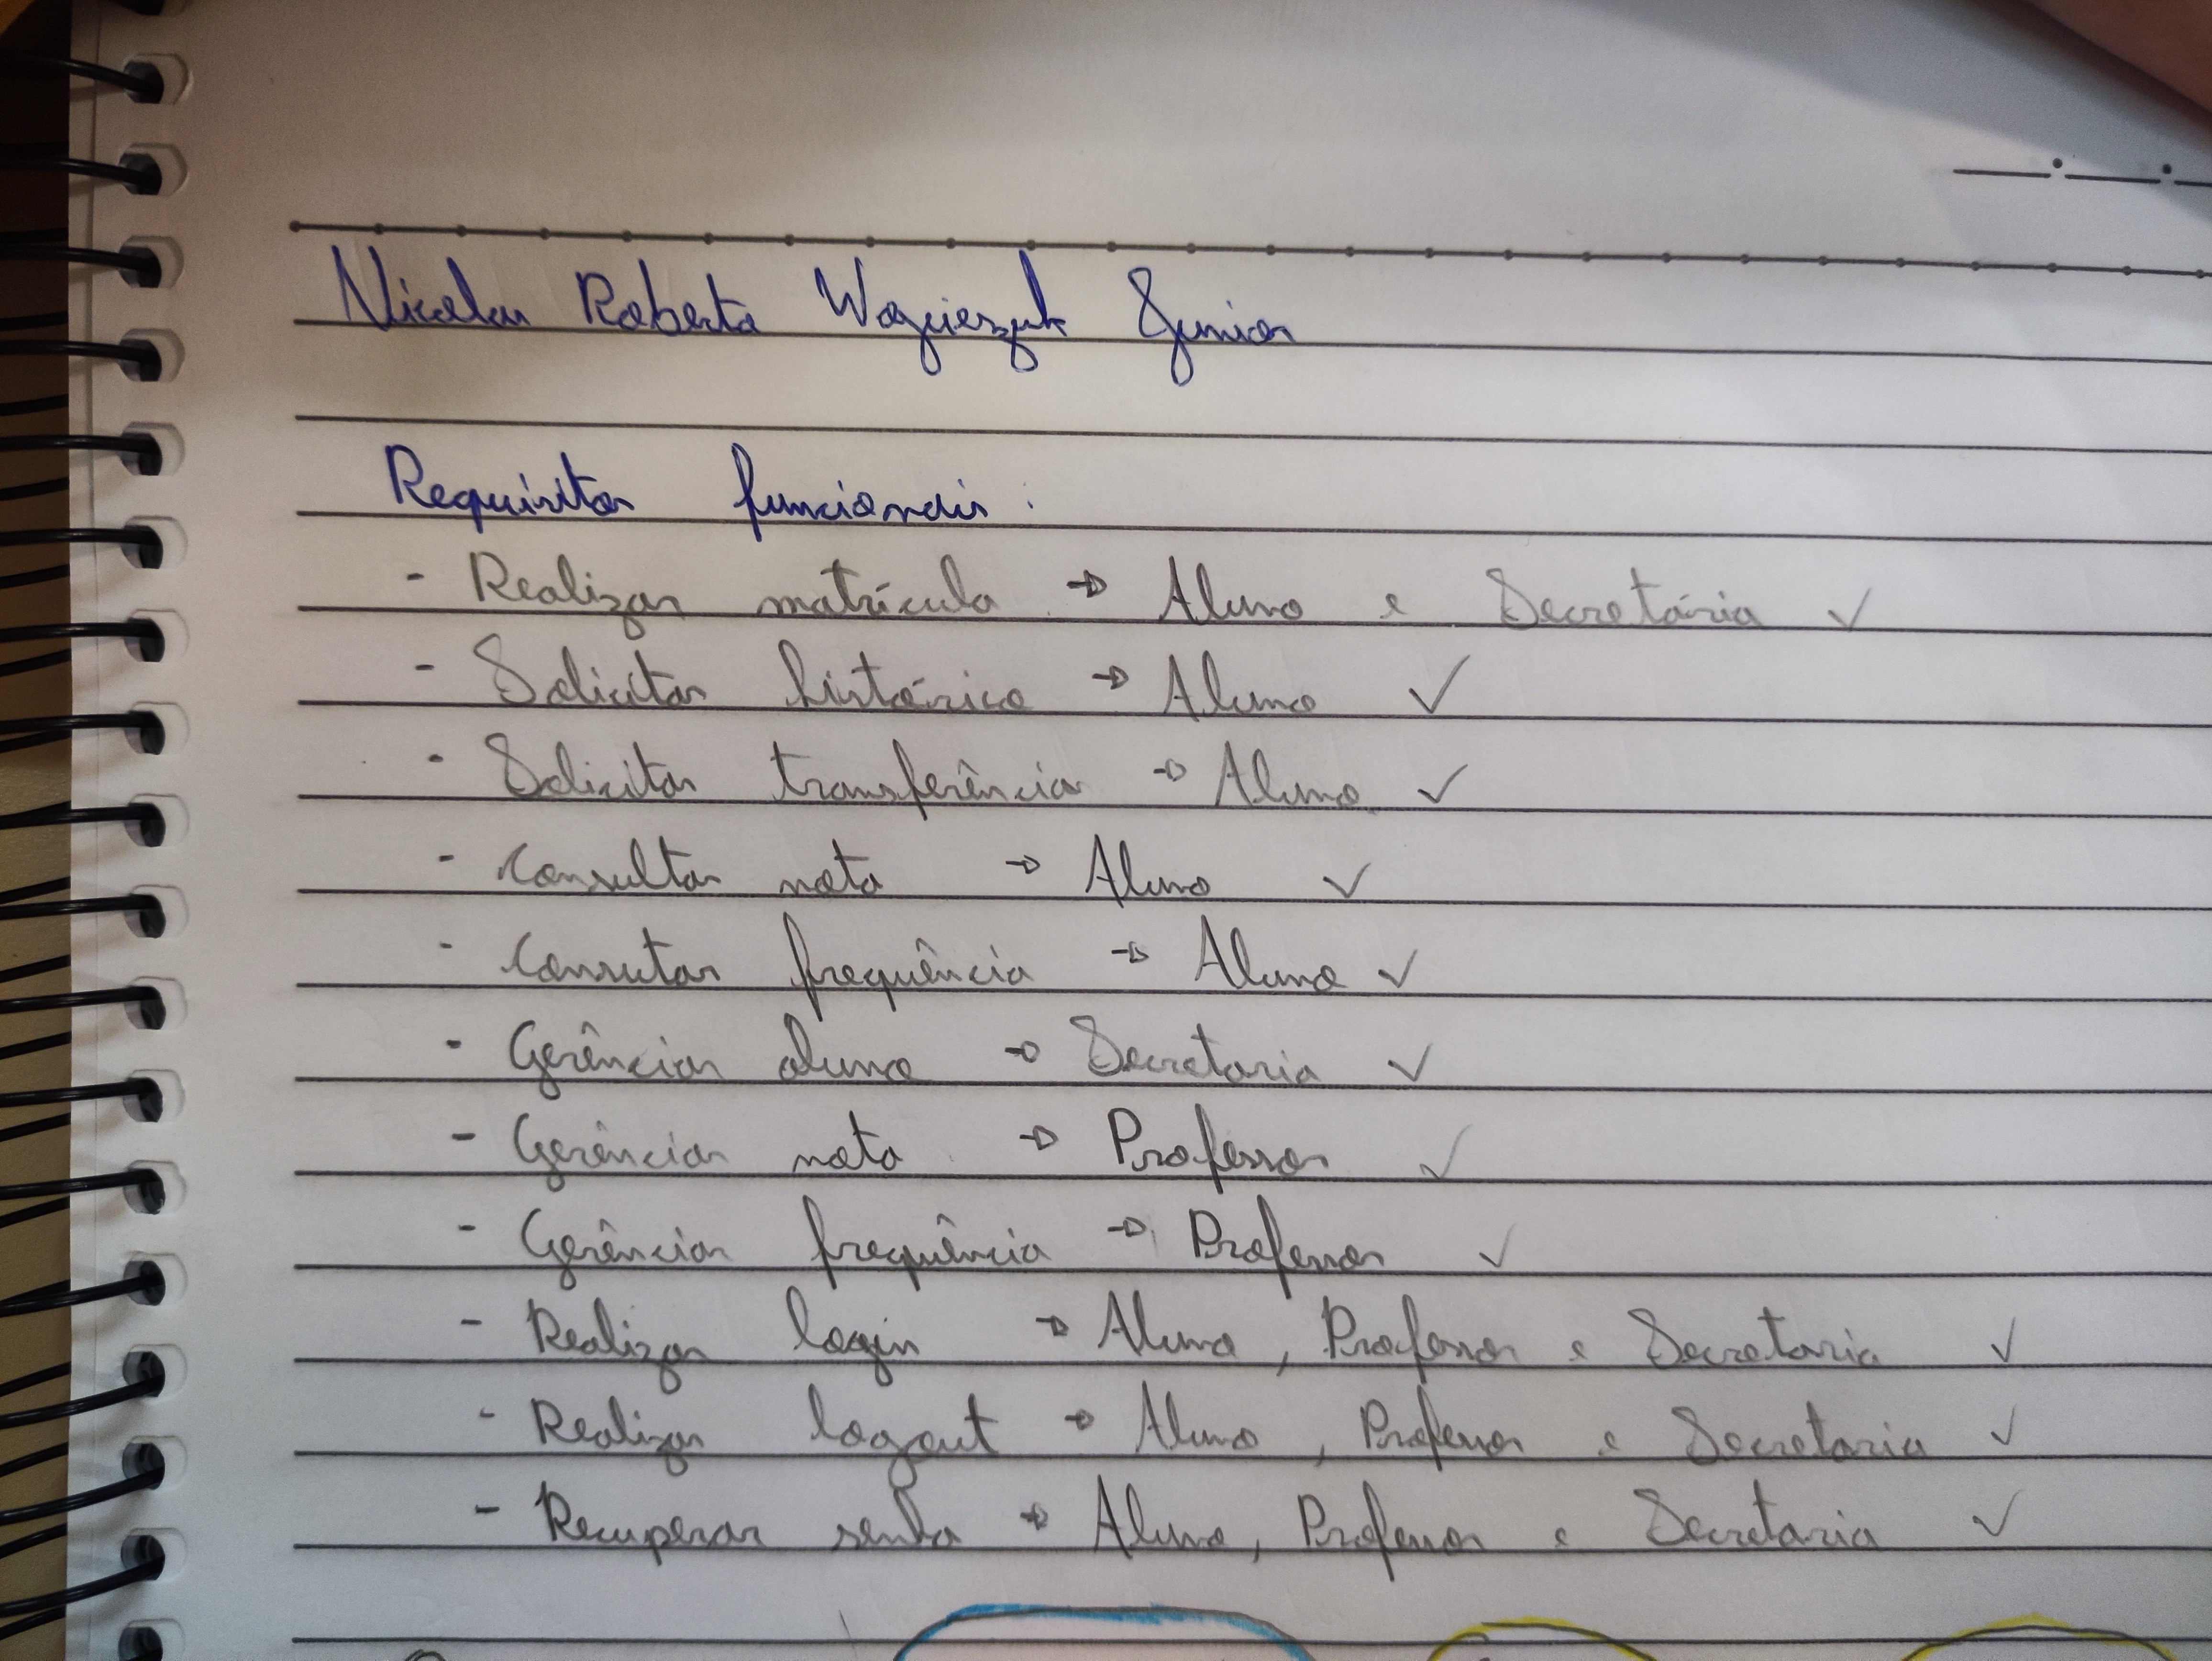 Nicolas Roberto Wojcieszuk Junior
Requisitos funcionais:
- Realizar matrícula → Aluno e Secretária ✓
- Solicitar histórico → Aluno ✓
- Solicitar transferência → Aluno ✓
- Consultar nota → Aluno ✓
- Consutar frequência → Aluno ✓
- Gerênciar aluno → Secretaria ✓
- Gerênciar nota → Professor ✓
- Gerênciar frequência → Professor ✓
- Realizar login → Aluno, Professor e Secretaria ✓
- Realizar logout → Aluno, Professor e Secretaria ✓
- Recuperar senha → Aluno, Professor e Secretaria ✓